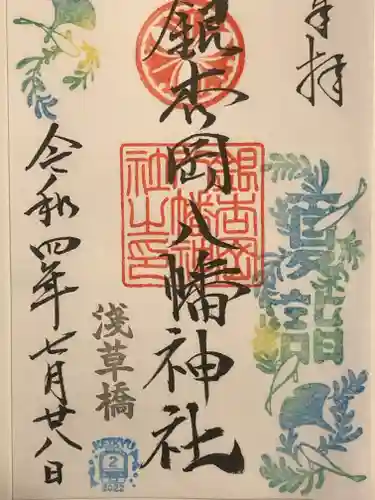 奉拝
夏詣
銀杏岡八幡神社
銀杏岡
八幡神
社之印
浅草橋
2
2022
令和四年七月廿八日